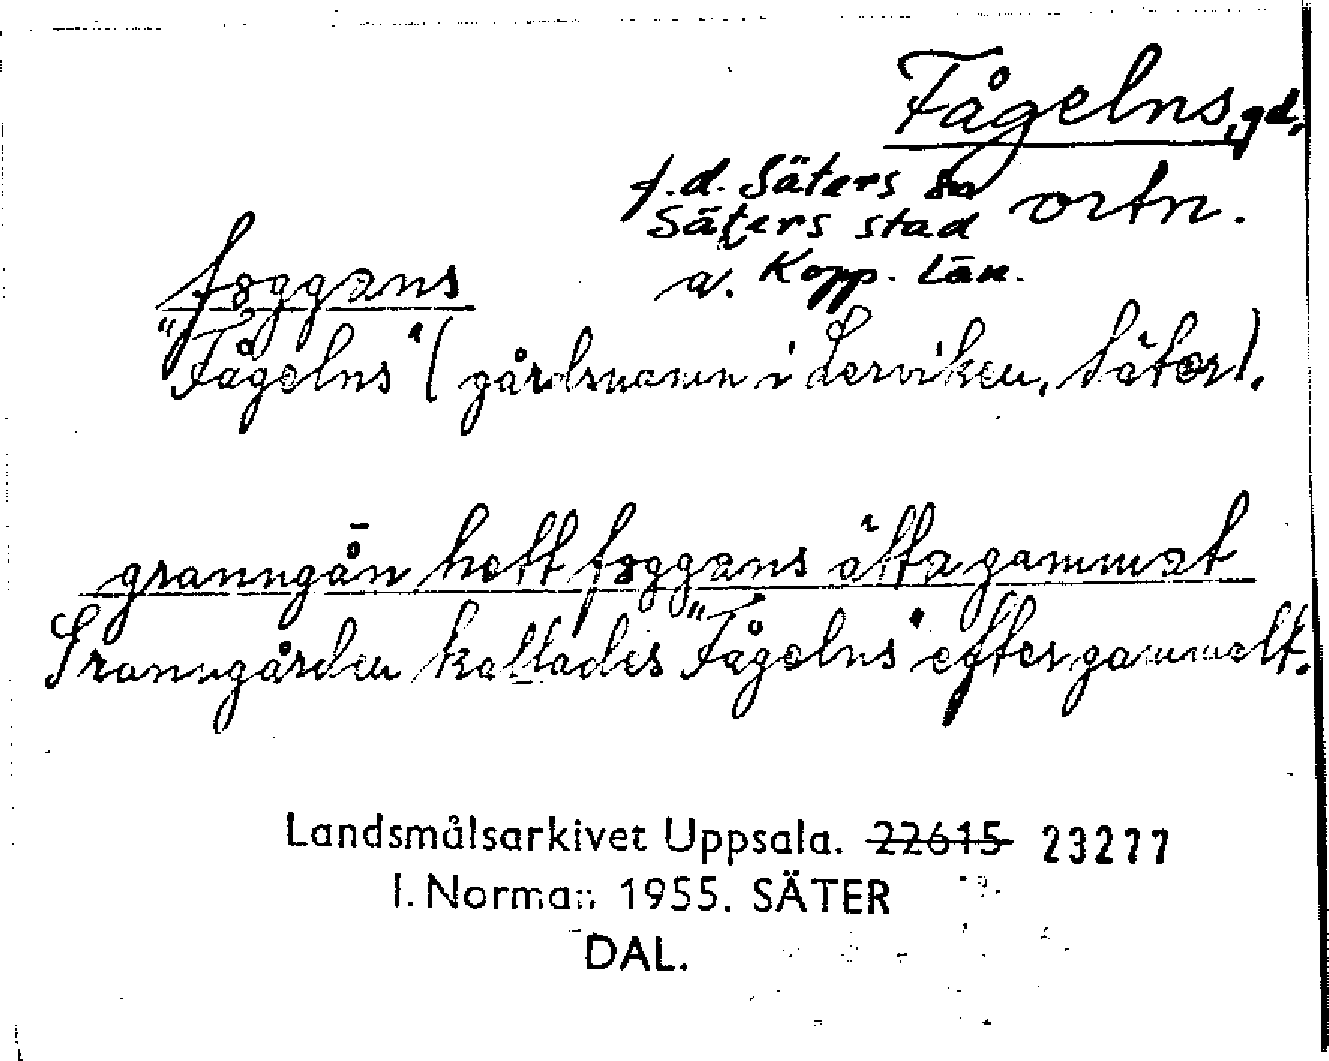 Fågelns, gd.
f.d. Säters sn ortn.
Säters stad
a. Kopp. Län.
foggans
"Fågelns" (gårdsnamn i Lerviken, Säter).
granngån hett foggans ätta gammalt
Granngården kallades "Fågelns" efter gammalt.
Landsmålsarkivet Uppsala. 22615 23277
I. Norman 1955. SÄTER
DAL.